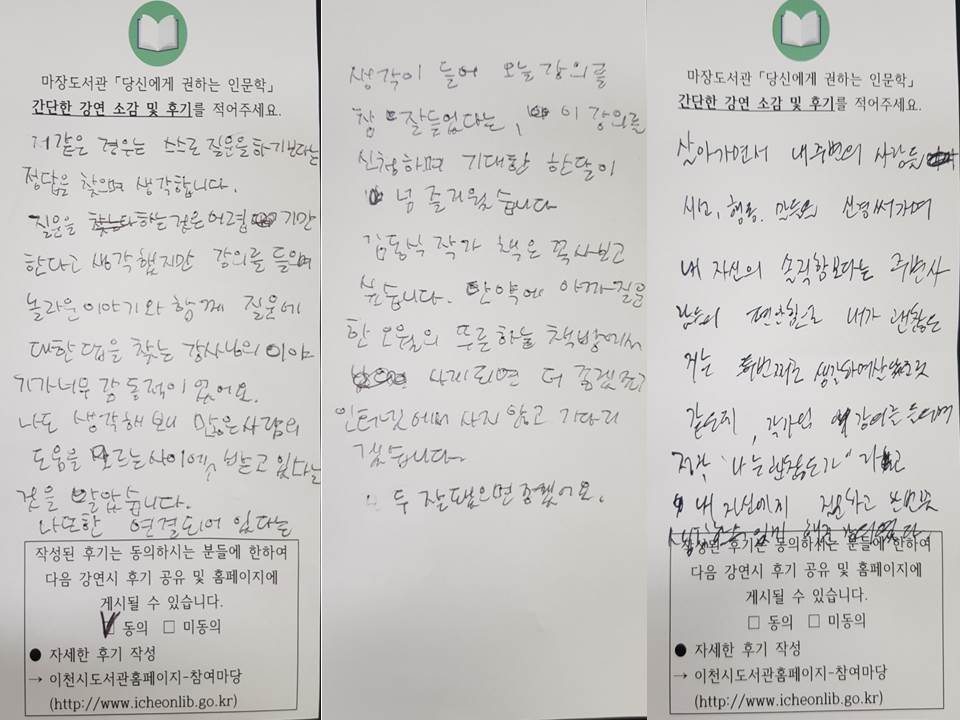 마장도서관 「당신에게 권하는 인문학」
간단한 강연 소감 및 후기를 적어주세요.
저같은 경우는 스스로 질문을 하기보다는
정답을 찾으며 생각합니다.
질문을 하는것은 어렵 기만
한다고 생각했지만 강의를 들으며
놀라운 이야기와 함께 질문에
대한 답을 찾는 강사님의 이야
기가 너무 감동적이 였어요.
나도 생각해 보니 많은 사람의
도움을 모르는 사이에 받고 있다는
것을 알았습니다.
나또한 연결되어 있다는
작성된 후기는 동의하시는 분들에 한하여
다음 강연시 후기 공유 및 홈페이지에
게시될 수 있습니다.
☑ 동의 □ 미동의
● 자세한 후기 작성
→ 이천시도서관홈페이지-참여마당
(http://www.icheonlib.go.kr)
생각이 들어 오늘 강의를
참 잘들었다는, 이 강의를
신청하며 기대한 한달이
넘 즐거웠습니다
김동식 작가 책은 꼭 사보고
싶습니다. 만약에 아까 질문
한 오월의 푸른하늘 책방에서
사게되면 더 좋겠죠?
인터넷에서 사지 않고 기다리
겠습니다.
모두 잘됐으면 좋겠어요.
마장도서관 「당신에게 권하는 인문학」
간단한 강연 소감 및 후기를 적어주세요.
살아가면서 내주변의 사람들
시선, 행동, 신경써가며
내 자신의 솔직함보다는 주변사
람들의 편안함으로 내가 괜찮은
거는 두번째로 생각하며 산
같은데, 작가님 강의를 들으며
"나는 괜찮은가" 라고
내 자신에게 질문하고
작성된 후기는 동의하시는 분들에 한하여
다음 강연시 후기 공유 및 홈페이지에
게시될 수 있습니다.
□ 동의 □ 미동의
● 자세한 후기 작성
→ 이천시도서관홈페이지-참여마당
(http://www.icheonlib.go.kr)